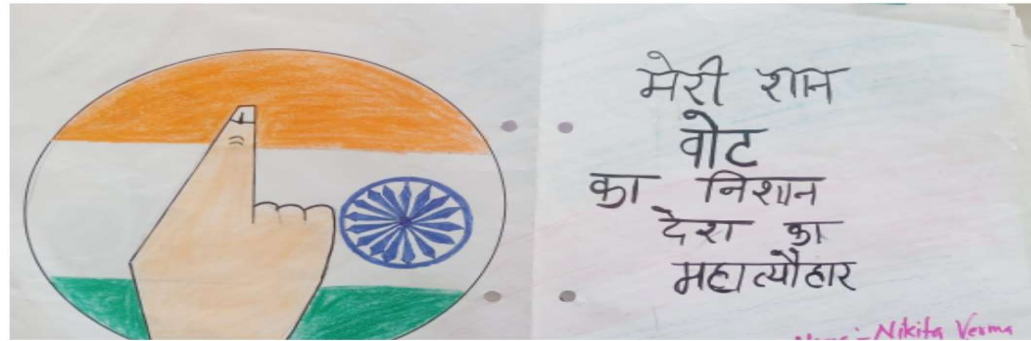 मेरी शान
वोट
का निशान
देश का
महात्यौहार
Name:- Nikita Verma